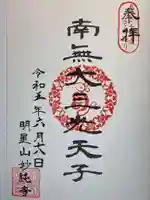 奉拝
南無大三光天子
令和五年六月十六日
明星山妙純寺